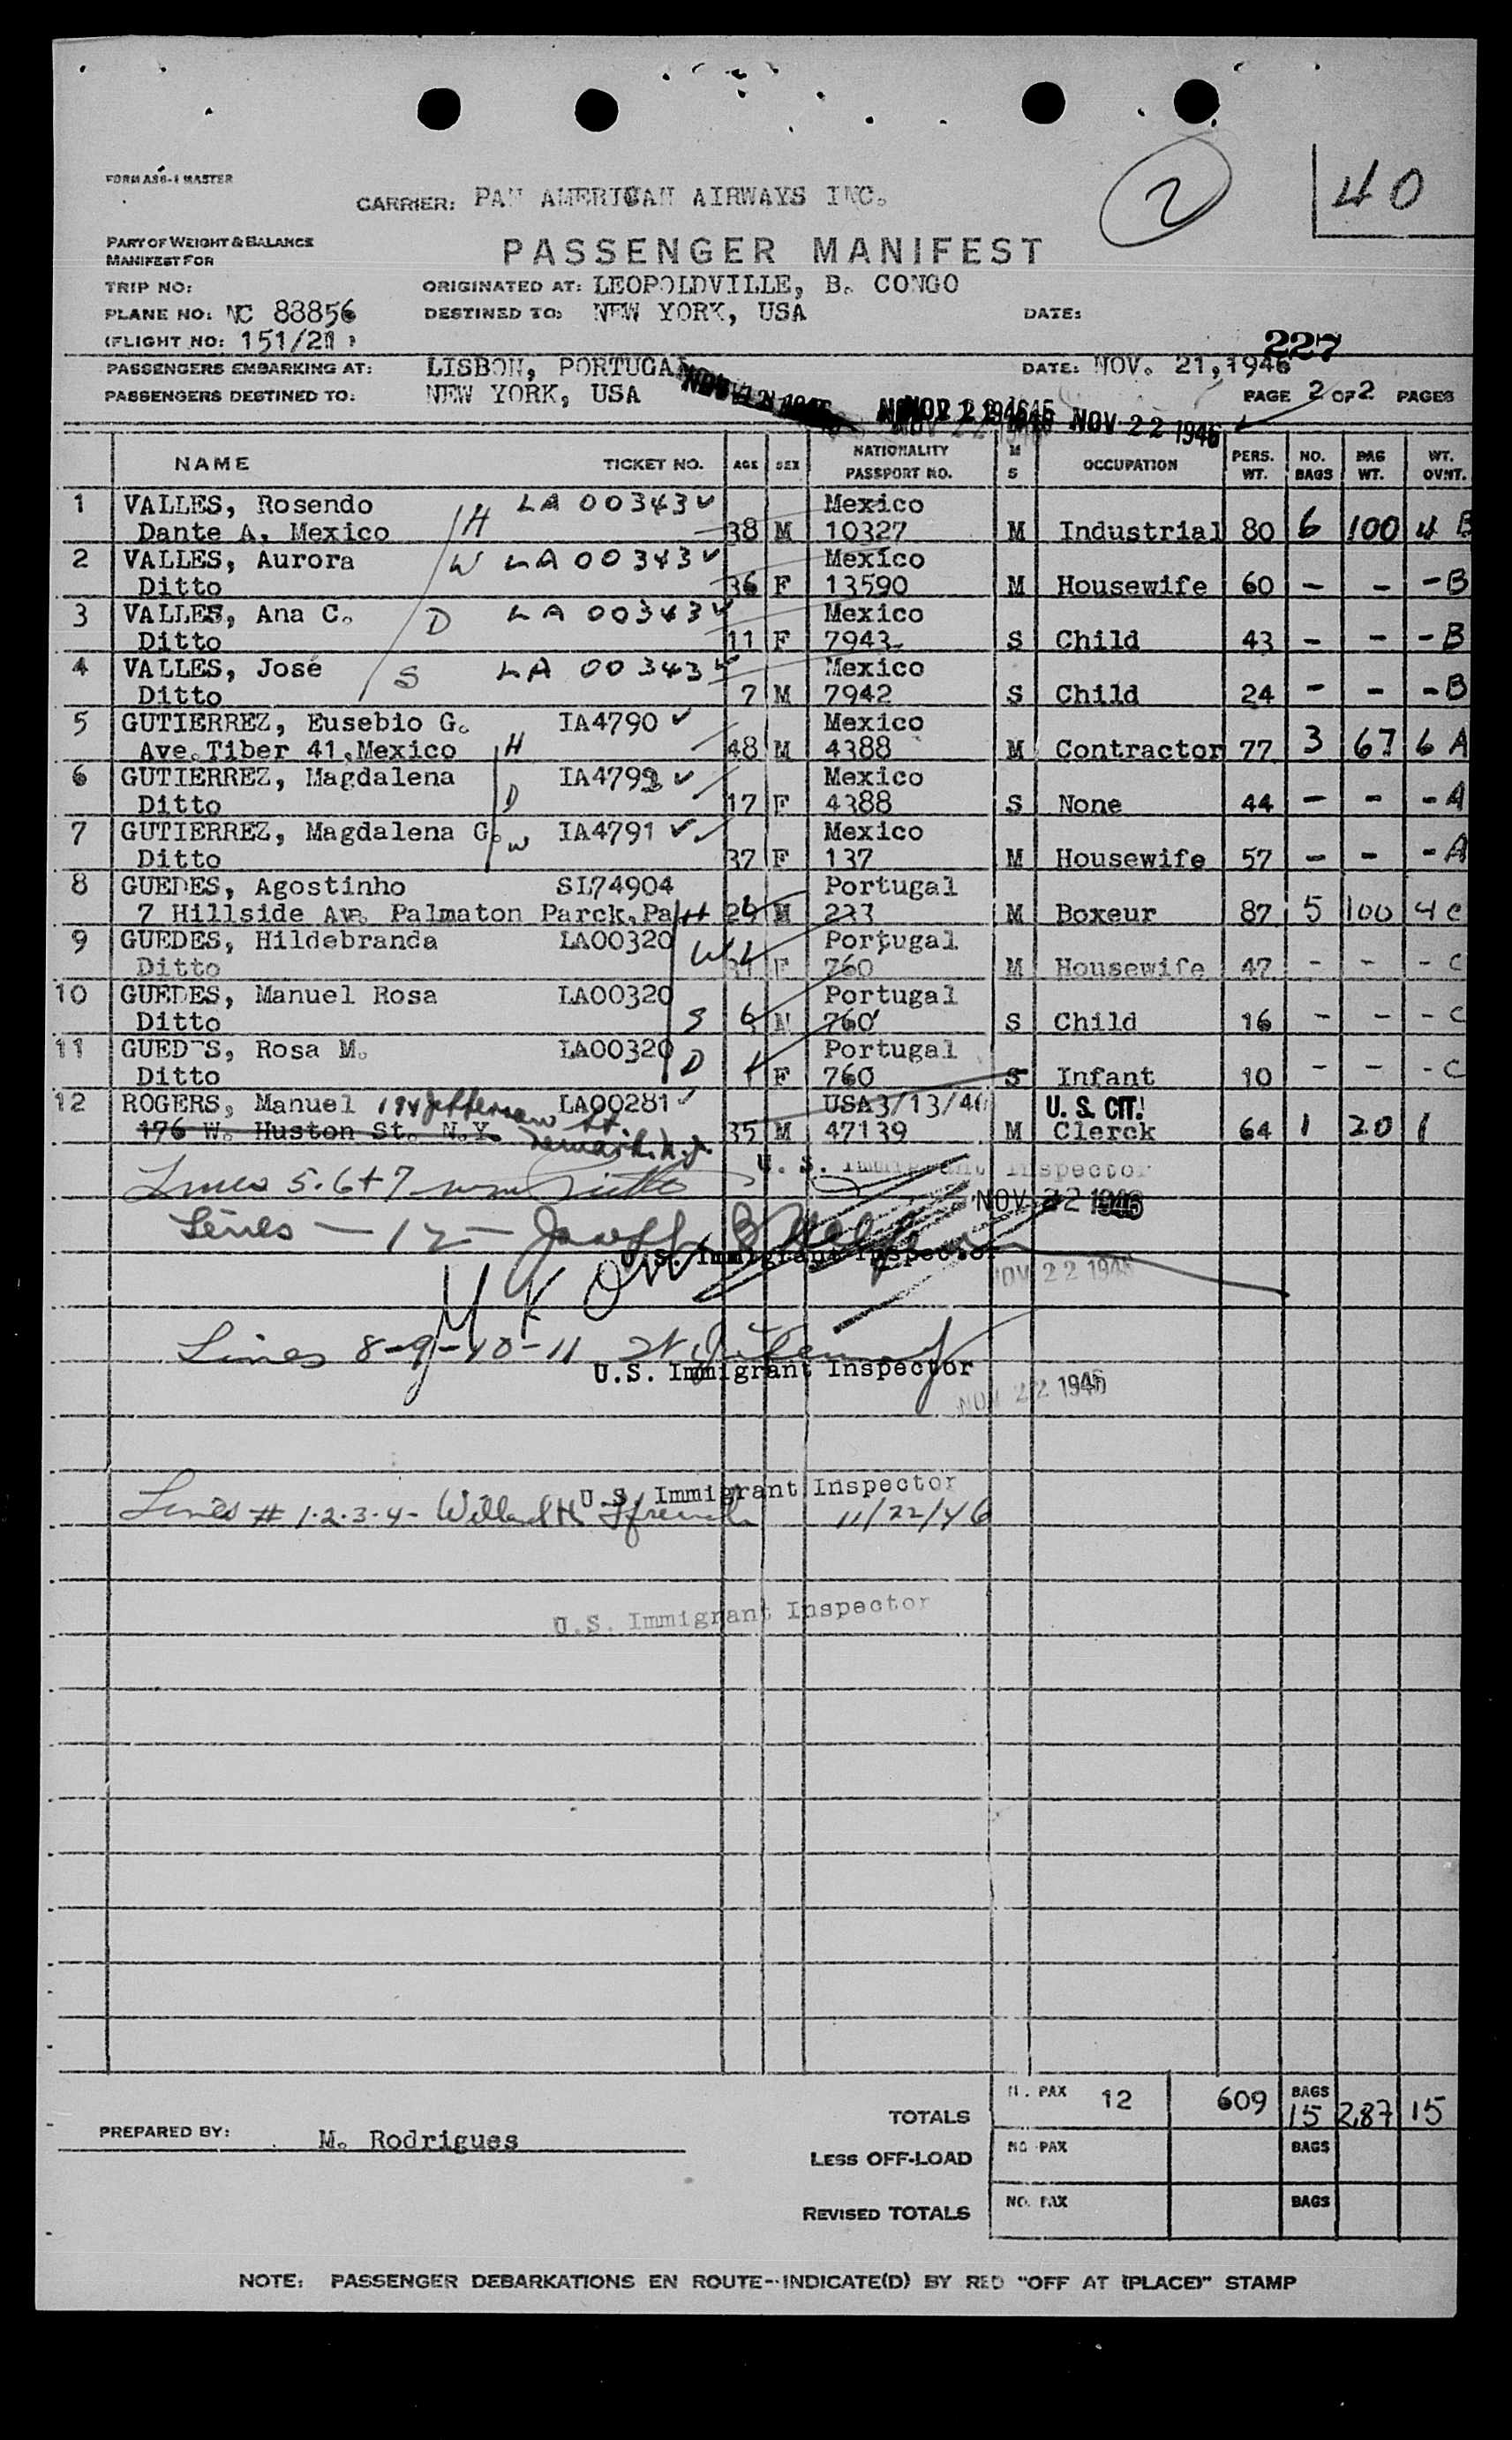 2
40
FORM ASG-1 MASTER
CARRIER: PAN AMERICAN AIRWAYS INC.
PART OF WEIGHT & BALANCE
MANIFEST FOR
PASSENGER MANIFEST
TRIP NO: ORIGINATED AT: LEOPOLDVILLE, B. CONGO
PLANE NO: NC 88856 DESTINED TO: NEW YORK, USA DATE:
(FLIGHT NO: 151/21 ) 227
PASSENGERS EMBARKING AT: LISBON, PORTUGAL DATE: NOV. 21, 1946
PASSENGERS DESTINED TO: NEW YORK, USA PAGE 2 OF 2 PAGES
NOV 22 1946
NAME TICKET NO. AGE SEX NATIONALITY PASSPORT NO. M S OCCUPATION PERS. WT. NO. BAGS BAG WT. WT. OVWT.
1 VALLES, Rosendo LA 00343 Mexico
Dante A. Mexico H 38 M 10327 M Industrial 80 6 100 4 B
2 VALLES, Aurora W LA 00343 Mexico
Ditto 36 F 13590 M Housewife 60 - - - B
3 VALLES, Ana C. D LA 00343 Mexico
Ditto 11 F 7943 S Child 43 - - - B
4 VALLES, José S LA 00343 Mexico
Ditto 7 M 7942 S Child 24 - - - B
5 GUTIERREZ, Eusebio G. IA4790 Mexico
Ave.Tiber 41.Mexico H 48 M 4388 M Contractor 77 3 67 6 A
6 GUTIERREZ, Magdalena IA4792 Mexico
Ditto D 17 F 4388 S None 44 - - - A
7 GUTIERREZ, Magdalena G. W IA4791 Mexico
Ditto 37 F 137 M Housewife 57 - - - A
8 GUEDES, Agostinho SL74904 Portugal
7 Hillside Ave. Palmaton Parck.Pa H M 233 M Boxeur 87 5 100 4 C
9 GUEDES, Hildebranda LA00320 W Portugal
Ditto F 760 M Housewife 47 - - - C
10 GUEDES, Manuel Rosa LA00320 Portugal
Ditto S 6 M 760 S Child 16 - - - C
11 GUED S, Rosa M. LA00320 Portugal
Ditto D F 760 S Infant 10 - - - C
12 ROGERS, Manuel 194 Jefferson St. LA00281 USA3/13/46 U. S. CIT.
176 W. Huston St. N.Y. Newark. N.J. 35 M 47139 M Clerck 64 1 20 1
U. S. Immigrant Inspector
Lines 5.6+7
NOV 22 1946
Lines - 12 - Joseph
U.S. Immigrant Inspector
NOV 22 1946
Lines 8-9-10-11
U.S. Immigrant Inspector
NOV 22 1946
U.S. Immigrant Inspector
Lines # 1.2.3.4- Willard H. Ffrench 11/22/46
U.S. Immigrant Inspector
TOTALS NO. PAX 12 609 BAGS 15 287 15
PREPARED BY: M. Rodrigues
LESS OFF-LOAD NO PAX BAGS
REVISED TOTALS NO. PAX BAGS
NOTE: PASSENGER DEBARKATIONS EN ROUTE--INDICATE(D) BY RED "OFF AT (PLACE)" STAMP